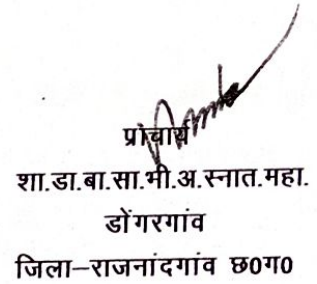 प्राचार्य
शा.डा.बा.सा.भी.अ.स्नात.महा.
डोंगरगांव
जिला–राजनांदगांव छ0ग0